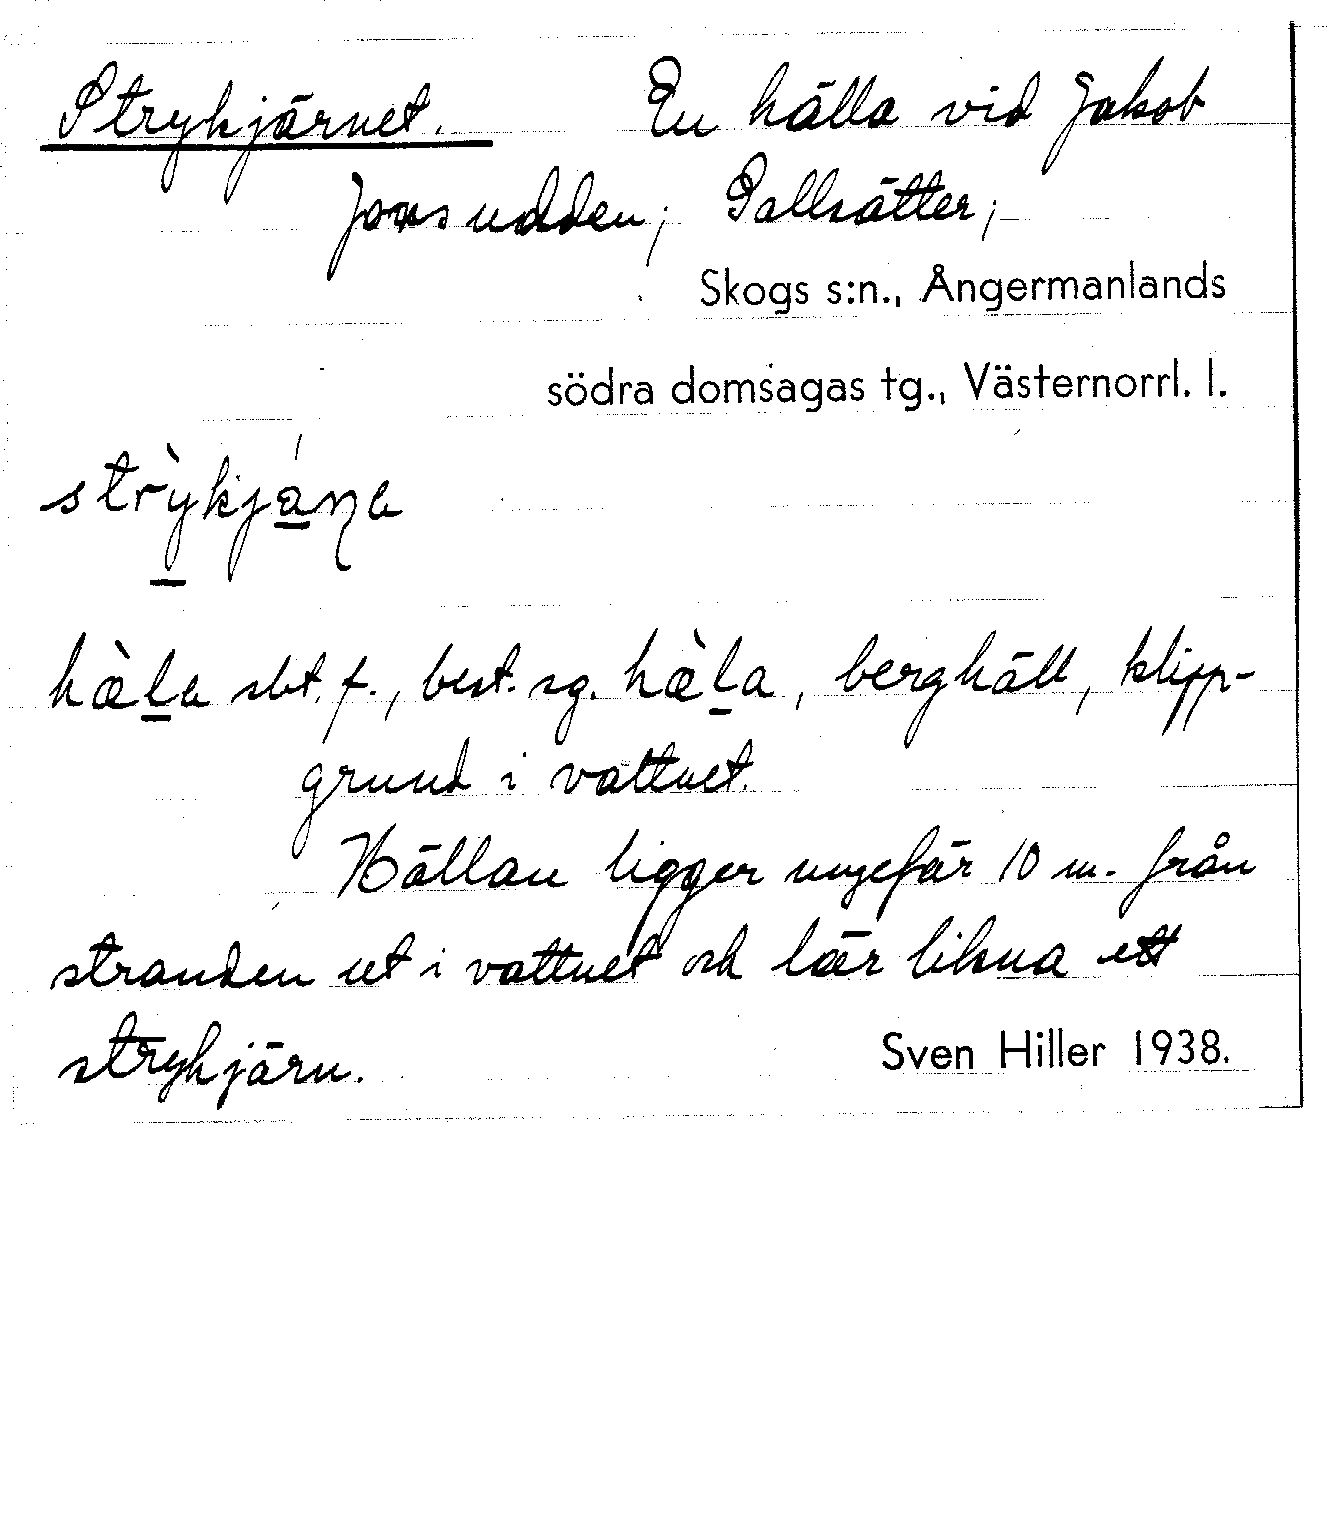 Strykjärnet. En hälla vid Jakob
Jonsudden, Salsätter,
Skogs s:n., Ångermanlands
södra domsagas tg., Västernorrl. l.
hæ̀la sbt. f., best. sg. hæ̀la, berghäll, klipp-
grund i vattnet.
Hällan ligger ungefär 10 m. från
stranden ut i vattnet och lär likna ett
strykjärn. Sven Hiller 1938.